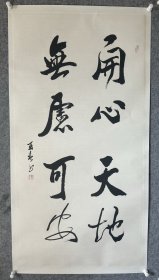 開心天地
無慮可安